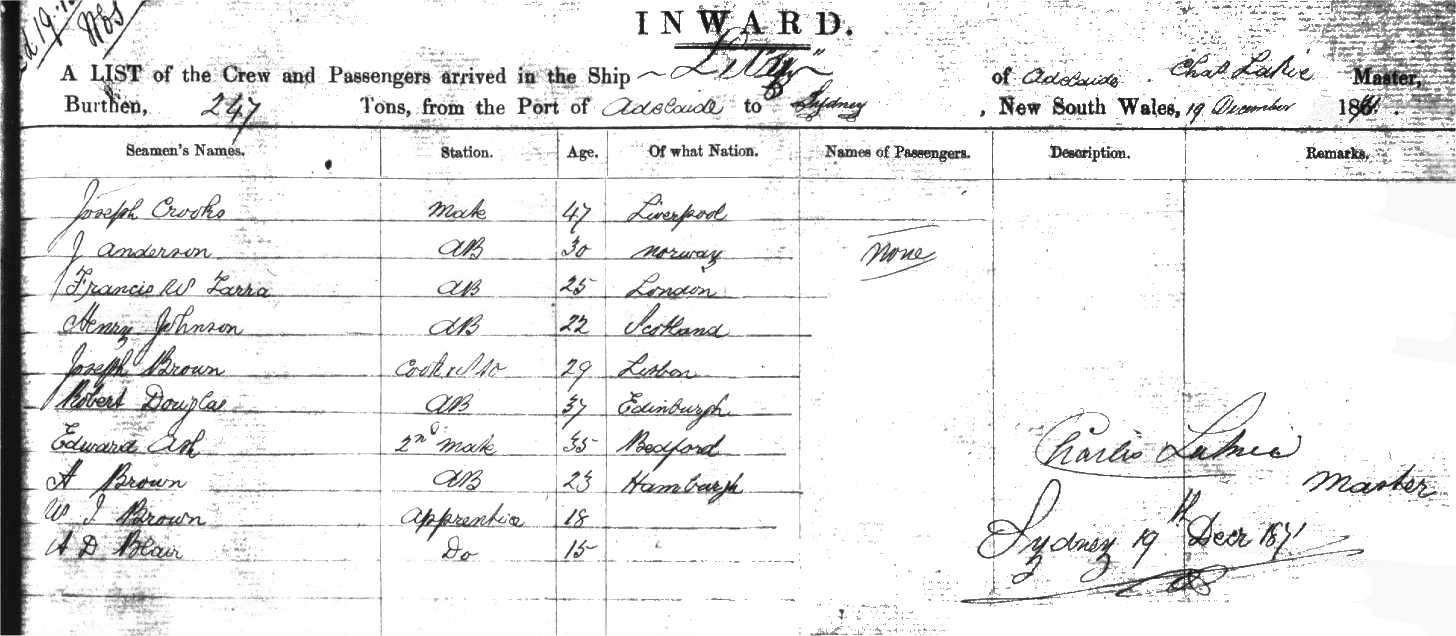 INWARD.
A LIST of the Crew and Passengers arrived in the Ship of Adelaide Master,
Burthen, 247 Tons, from the Port of Adelaide to Sydney, New South Wales, 19 December 1871.
Seamen's Names. Station. Age. Of what Nation. Names of Passengers. Description. Remarks.
Joseph Crooks Mate 47 Liverpool
J Anderson AB 30 Norway None
Francis W AB 25 London
Henry Johnson AB 22 Scotland
Joseph Brown Cook 29 Lisbon
Robert Douglas AB 37 Edinburgh
Edward Ash 2nd Mate 35 Bedford
A Brown AB 23 Hamburgh
W J Brown Apprentice 18
A D Blair Do 15
Charles
Master
Sydney 19th Decr 1871